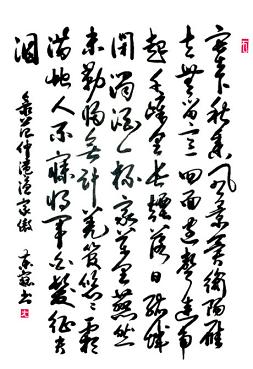 塞下秋来風景異衡陽雁
去無留意四面邊聲連角
起千嶂里長煙落日孤城
閉濁酒一杯家萬里燕然
未勒歸無計羌管悠悠霜
滿地人不寐將軍白髮征夫
淚
范仲淹漁家傲
書